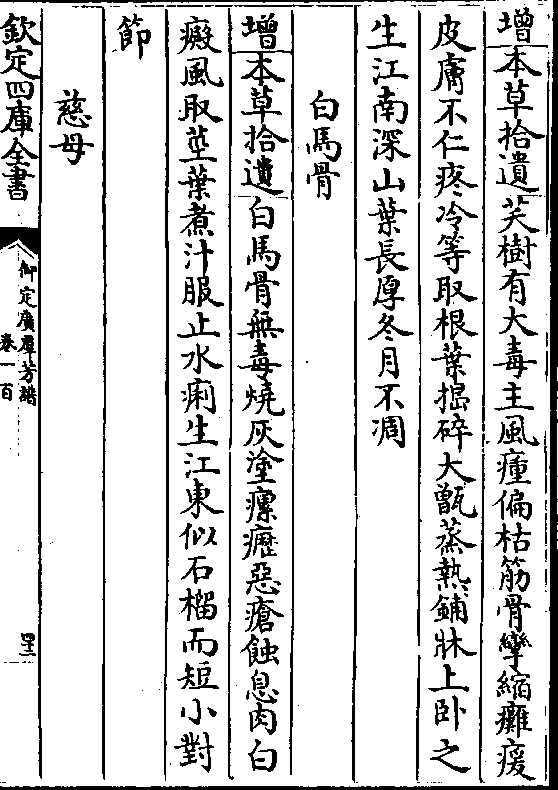 增本草拾遺芺樹有大毒主風瘇偏枯筋骨攣縮癱瘓
皮膚不仁疼冷等取根葉搗碎大甑蒸熱鋪牀上卧之
生江南深山葉長厚冬月不凋
白馬骨
增本草拾遺白馬骨無毒燒灰塗瘰癧惡瘡蝕息肉白
癜風取莖葉煮汁服止水痢生江東似石榴而短小對
節
慈母
欽定四庫全書
御定廣羣芳譜
卷一百